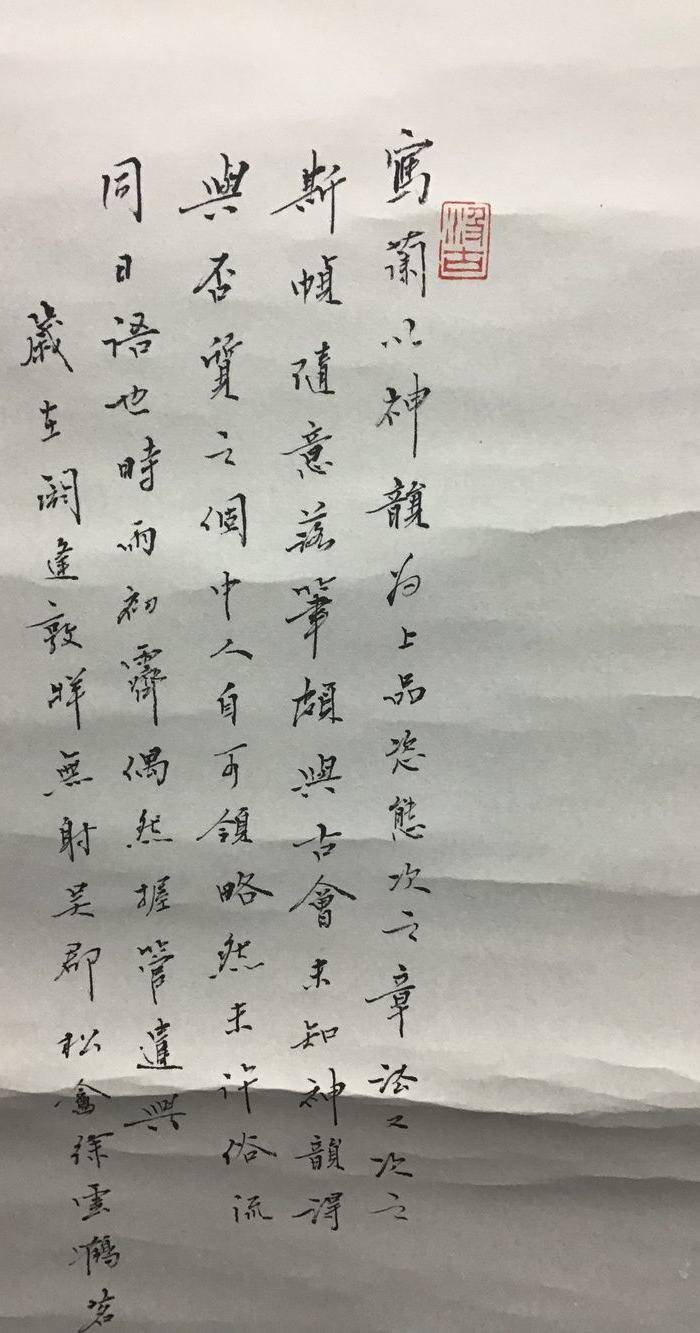 汲古
寫蘭以神韻为上品恣態次之章法又次之
斯幀隨意落筆頗與古會未知神韻得
與否質之個中人自可領略然未許俗流
同日語也時雨初霽偶然握管遣興
歲在閼逢敦牂無射吳郡松盦徐雲鶴